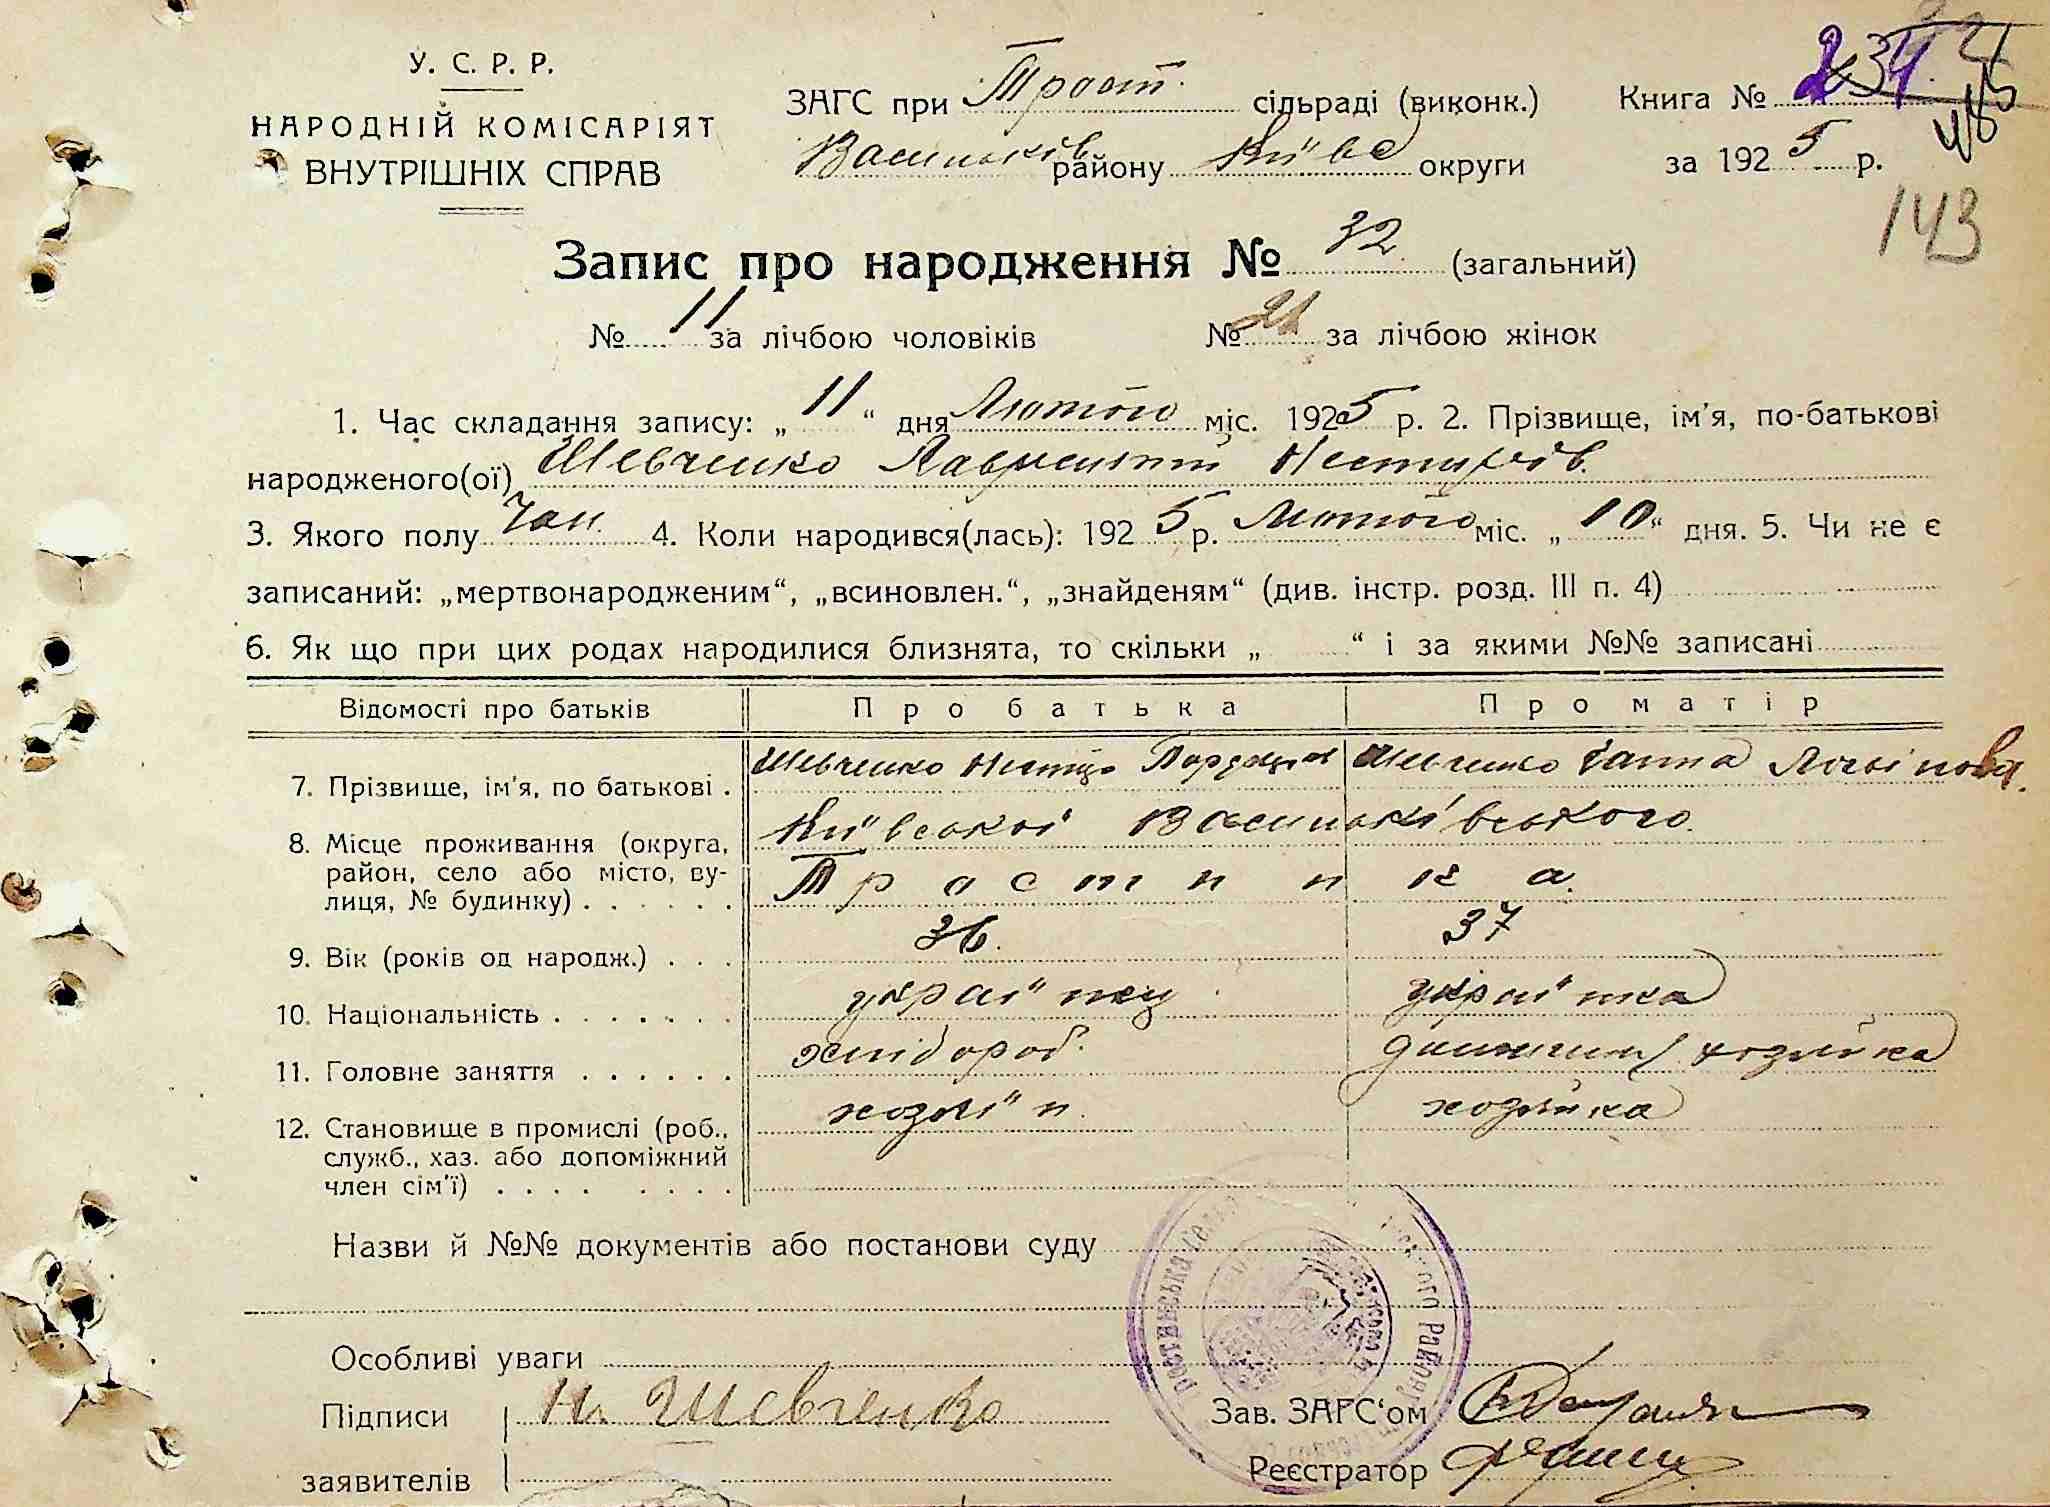 У. С. Р. Р.
НАРОДНІЙ КОМІСАРІЯТ
ВНУТРІШНІХ СПРАВ
ЗАГС при Трост. сільраді (виконк.)
Васильків району Київс округи
Книга №
за 1925 р.
143
Запис про народження № 32 (загальний)
№ 11 за лічбою чоловіків № 21 за лічбою жінок
1. Час складання запису: „11“ дня Лютого міс. 1925 р. 2. Прізвище, ім'я, по-батькові
народженого(ої) Шевченко Лаврентій Нестиров.
3. Якого полу Чол. 4. Коли народився(лась): 1925 р. Лютого міс. „10“ дня. 5. Чи не є
записаний: „мертвонародженим“, „всиновлен.“, „знайденям“ (див. інстр. розд. III п. 4)
6. Як що при цих родах народилися близнята, то скільки „ “ і за якими №№ записані
Відомості про батьків Про батька Про матір
7. Прізвище, ім'я, по батькові . Шевченко Шевченко Ганна
8. Місце проживання (округа, Київської Васильківського
район, село або місто, ву- Тростинка.
лиця, № будинку) . . . . . .
9. Вік (років од народж.) . . . 36. 37
10. Національність . . . . . . . українец українка
11. Головне заняття . . . . . . хлібороб. хозяйка
12. Становище в промислі (роб., хозяїн. хозяйка
служб., хаз. або допоміжний
член сім'ї) . . . . . . . .
Назви й №№ документів або постанови суду
Особливі уваги
Підписи Н. Шевченко
заявителів
Зав. ЗАГС‘ом
Реєстратор